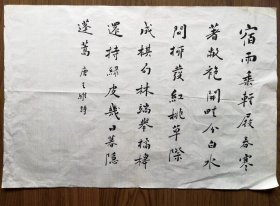 宿雨乘軒屐春寒
著敝袍開畦分白水
間柳發紅桃草際
成棋局林端舉桔槔
還持鹿皮几日暮隱
蓬蒿唐王維詩